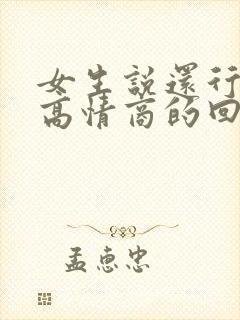 女生說還行
高情商的回
孟惠忠